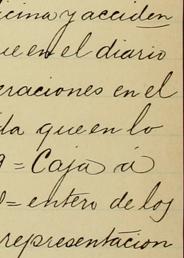 icina y acciden
ue en el diario
eraciones en el
da que en lo
9 = Caja á
= entero de los
representacion